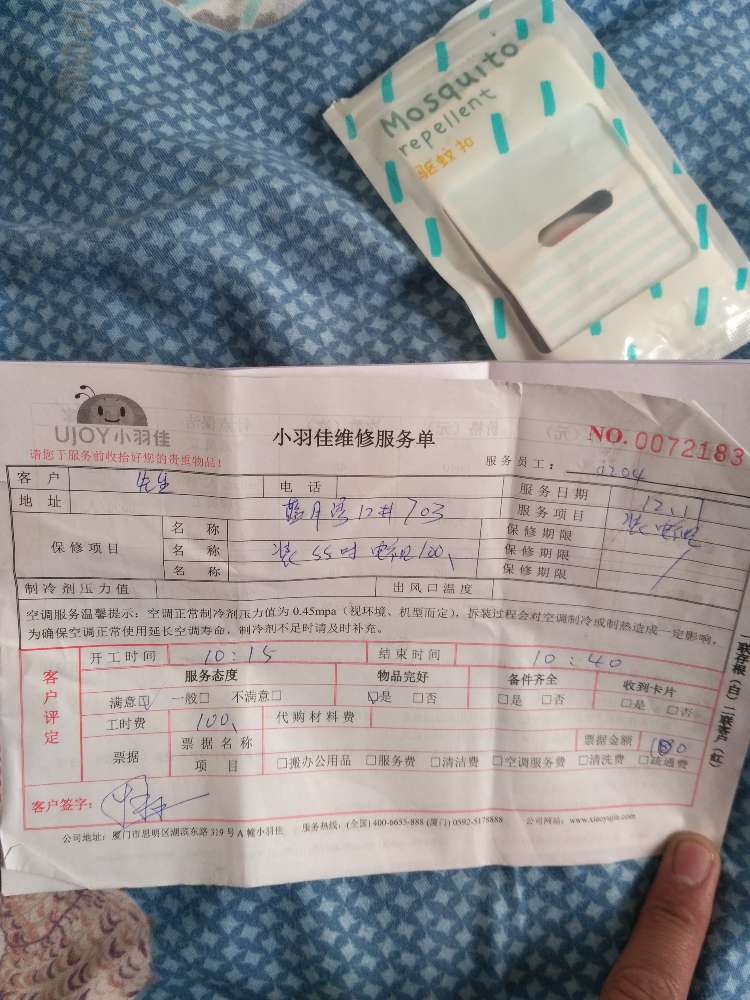 Mosquito
repellent
驱蚊扣
UJOY小羽佳
小羽佳维修服务单
NO. 0072183
请您于服务前收拾好您的贵重物品!
服务员工:
客户 先生 电话 服务日期 12.1
地址 12# 703 服务项目 装电视
保修项目 名称 保修期限
名称 装55吋电视100、 保修期限
名称 保修期限
制冷剂压力值 出风口温度
空调服务温馨提示:空调正常制冷剂压力值为0.45mpa(视环境、机型而定),拆装过程会对空调制冷或制热造成一定影响,
为确保空调正常使用延长空调寿命,制冷剂不足时请及时补充。
客户评定
开工时间 10:15 结束时间 10:40
服务态度 物品完好 备件齐全 收到卡片
满意☑ 一般□ 不满意□ ☑是 □否 □是 □否 □是 □否
工时费 100、 代购材料费
票据 票据名称 票据金额
项目 □搬办公用品 □服务费 □清洁费 □空调服务费 □清洗费 □疏通费
客户签字:
公司地址:厦门市思明区湖滨东路319号A幢小羽佳 服务热线:(全国)400-6655-888 (厦门)0592-5178888 公司网站:www.xiaoyujia.com
一联存根(白)二联客户(红)